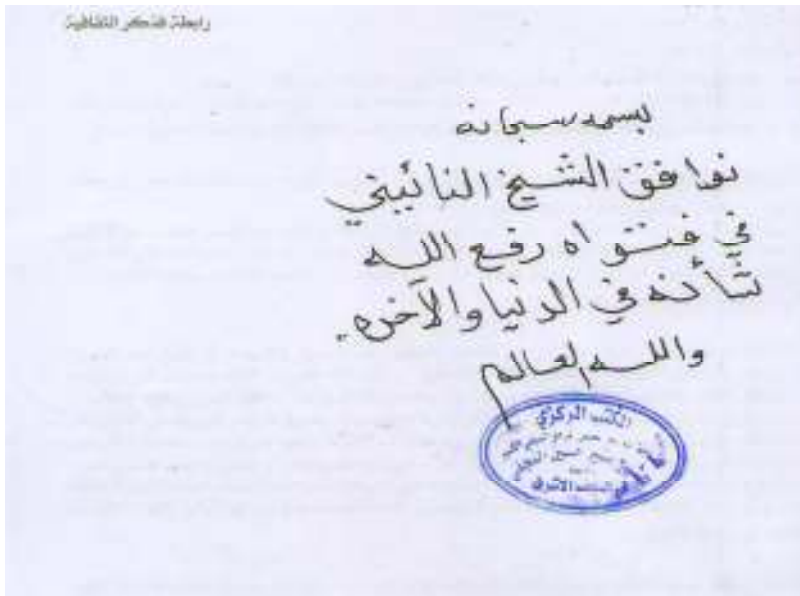 رابطة فذكر الثقافية
بسمه سبحانه
نوافق الشيخ النائيني
في فتواه رفع الله
شأنه في الدنيا والآخره.
والله العالم
المكتب المركزي
النجف الاشرف